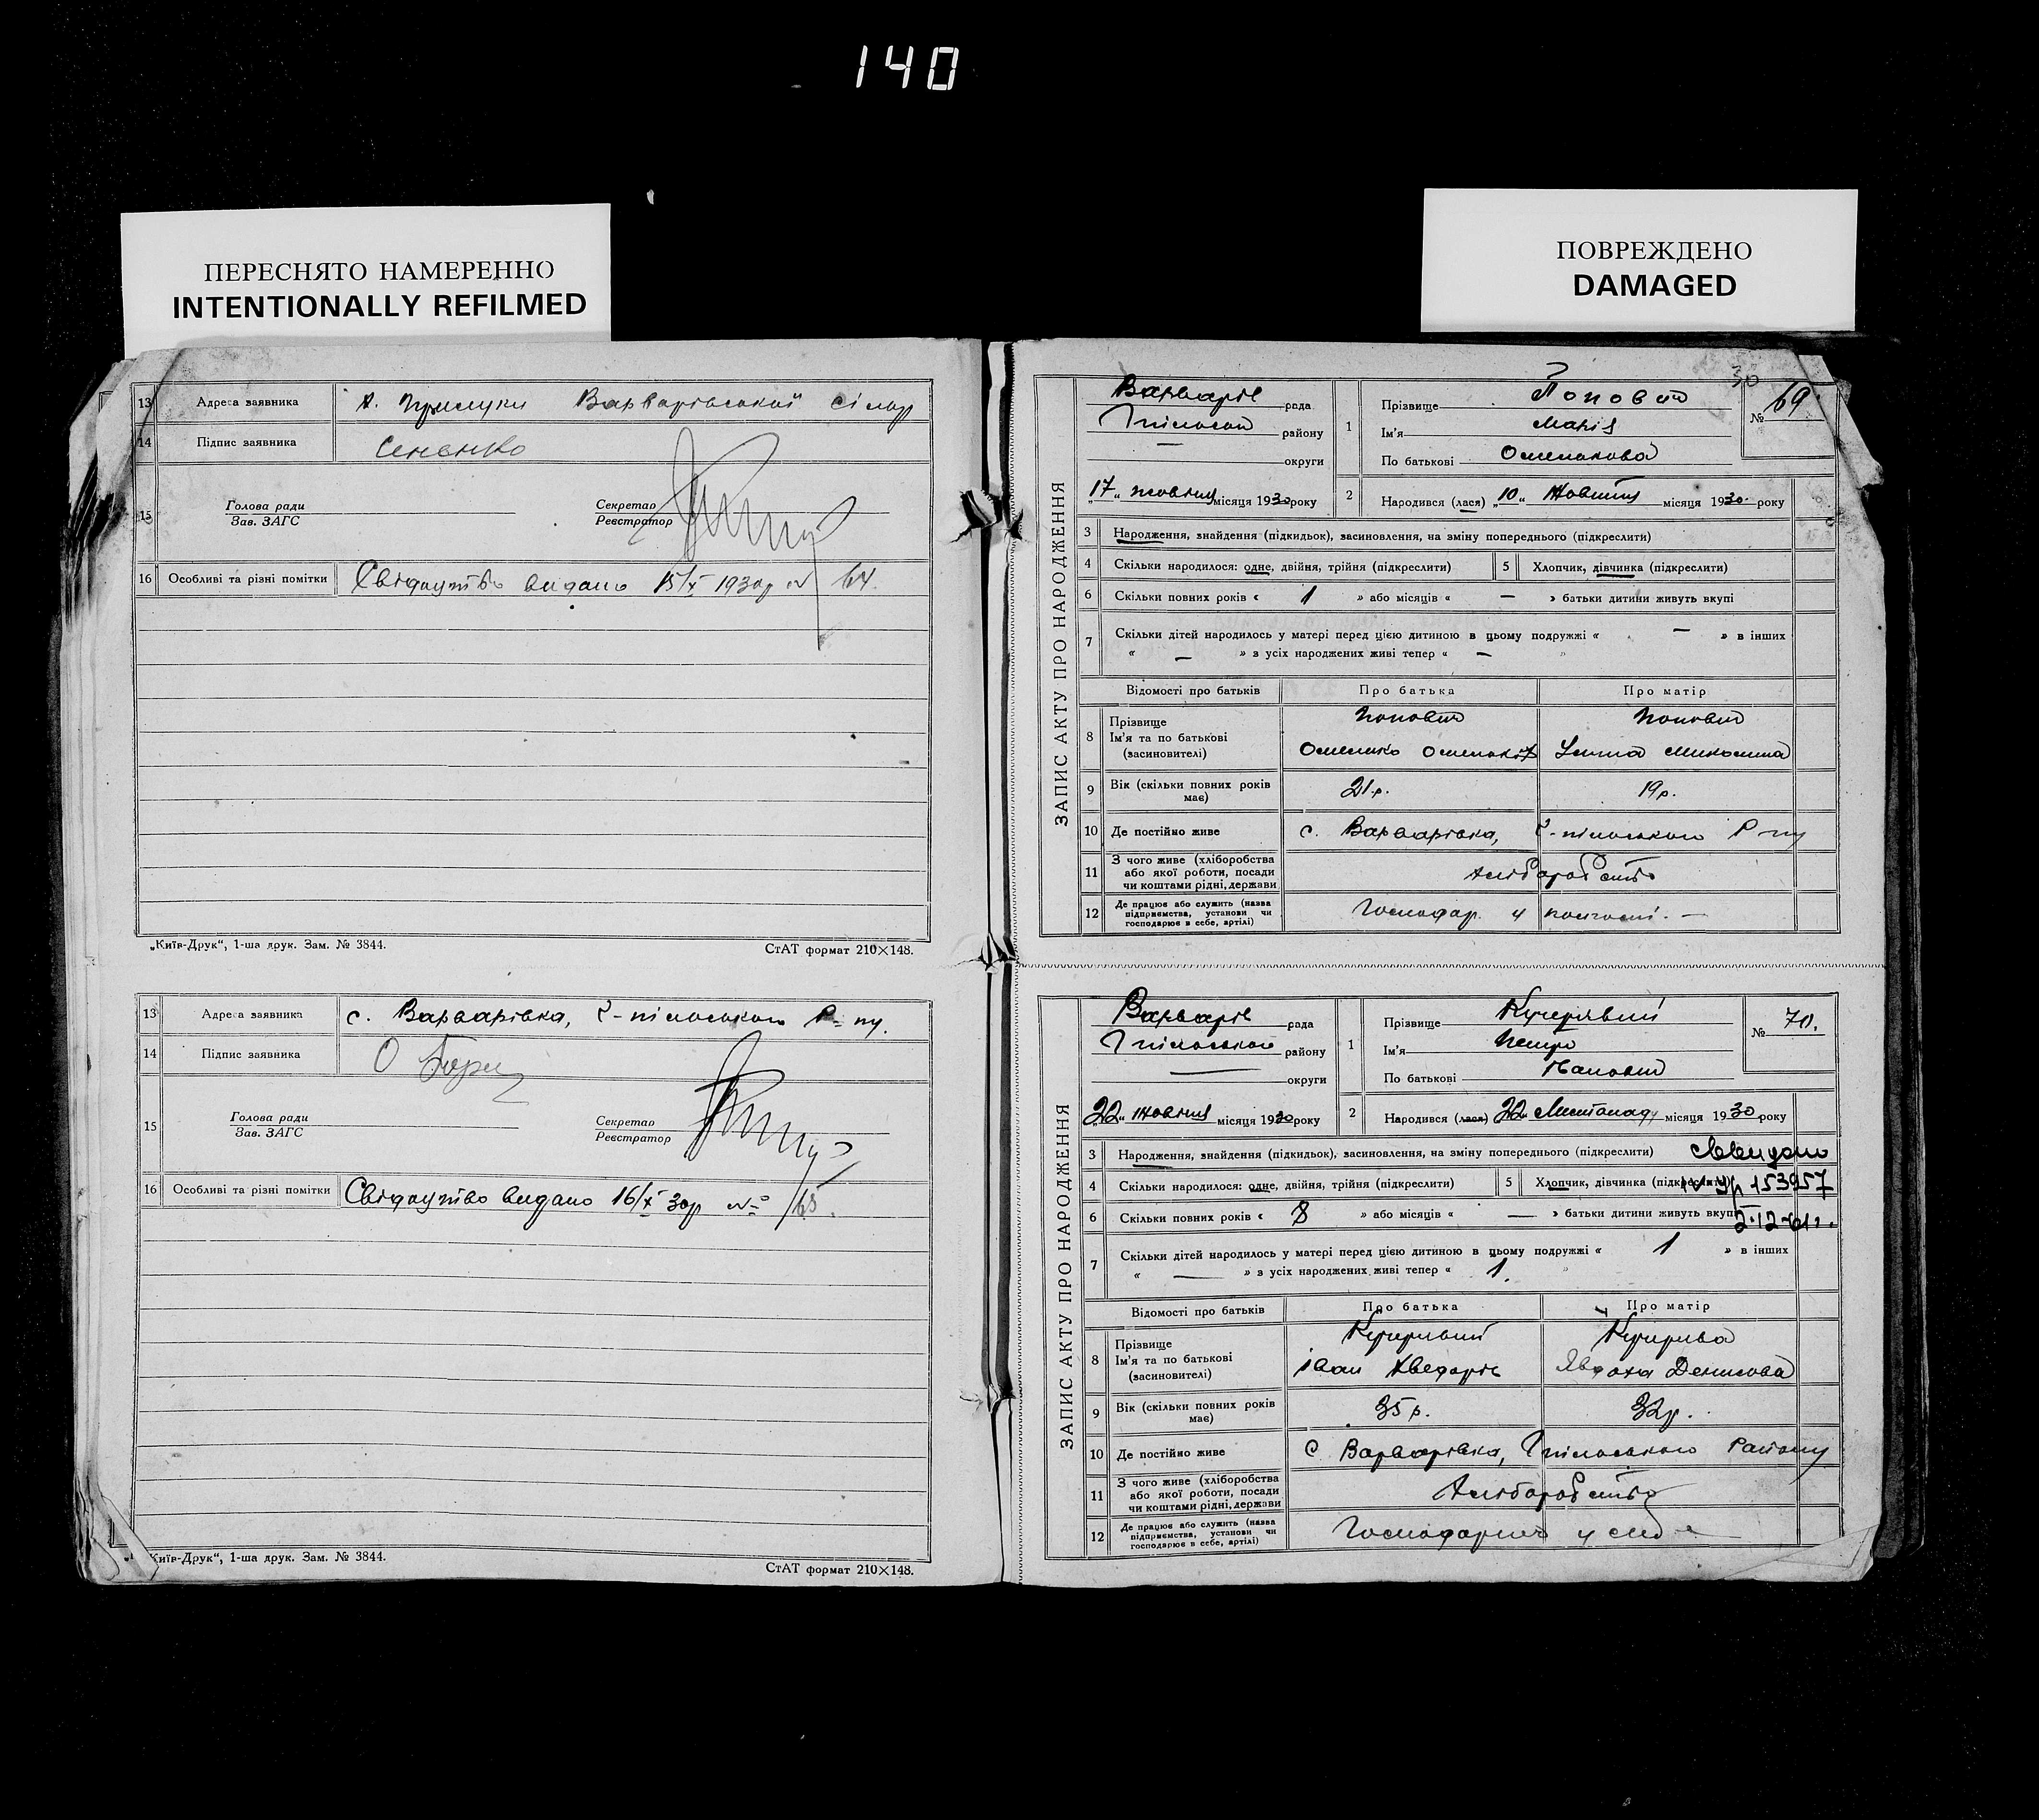 140
ПЕРЕСНЯТО НАМЕРЕННО
INTENTIONALLY REFILMED
ПОВРЕЖДЕНО
DAMAGED
13 Адреса заявника х. Прилуки Варварівської сільр
14 Підпис заявника Сененко
15 Голова ради Секретар
Зав. ЗАГС Реєстратор
16 Особливі та різні помітки Свідоцтво видано 15/X 1930р № 64.
„Київ-Друк“, 1-ша друк. Зам. № 3844. СтАТ формат 210×148.
13 Адреса заявника с. Варварівка,
14 Підпис заявника
15 Голова ради Секретар
Зав. ЗАГС Реєстратор
16 Особливі та різні помітки Свідоцтво видано 16/X 30р № 65.
Київ-Друк“, 1-ша друк. Зам. № 3844. СтАТ формат 210×148.
ЗАПИС АКТУ ПРО НАРОДЖЕННЯ
30
Варварів рада
району
округи
„17“ жовтня місяця 1930 року
1 Прізвище Попович
Ім'я Марія
По батькові Омелькова
№ 69
2 Народився (лася) „10“ Жовтня місяця 1930 року
3 Народження, знайдення (підкидьок), засиновлення, на зміну попереднього (підкреслити)
4 Скільки народилося: одне, двійня, трійня (підкреслити) 5 Хлопчик, дівчинка (підкреслити)
6 Скільки повних років « 1 » або місяців « — » батьки дитини живуть вкупі
7 Скільки дітей народилось у матері перед цією дитиною в цьому подружжі « — » в інших
« — » з усіх народжених живі тепер « — »
Відомості про батьків Про батька Про матір
8 Прізвище Попович Попович
Ім'я та по батькові
(засиновителі) Омелько Омелькович Уляна Миколина
9 Вік (скільки повних років
має) 21 р. 19 р.
10 Де постійно живе с. Варварівка, Р-ну
11 З чого живе (хліборобства
або якої роботи, посади
чи коштами рідні, держави Хліборобство
12 Де працює або служить (назва
підприємства, установи чи
господарює в себе, артілі) Господар. у
ЗАПИС АКТУ ПРО НАРОДЖЕННЯ
Варварів рада
району
округи
„22“ жовтня місяця 1930 року
1 Прізвище Кучерявий
Ім'я Петро
По батькові Іванович
№ 70.
2 Народився (лася) „22“ Листопаду місяця 1930 року
3 Народження, знайдення (підкидьок), засиновлення, на зміну попереднього (підкреслити)
4 Скільки народилося: одне, двійня, трійня (підкреслити) 5 Хлопчик, дівчинка (підкреслити) 153957
6 Скільки повних років « 8 » або місяців « — » батьки дитини живуть вкупі
2-12-61г.
7 Скільки дітей народилось у матері перед цією дитиною в цьому подружжі « 1 » в інших
« — » з усіх народжених живі тепер « 1. »
Відомості про батьків Про батька Про матір
8 Прізвище Кучерявий Кучерява
Ім'я та по батькові
(засиновителі) Іван Хведорів Явдоха Денисова
9 Вік (скільки повних років
має) 35 р. 32 р.
10 Де постійно живе с. Варварівка, Району
11 З чого живе (хліборобства
або якої роботи, посади
чи коштами рідні, держави Хліборобство
12 Де працює або служить (назва
підприємства, установи чи
господарює в себе, артілі) у себе